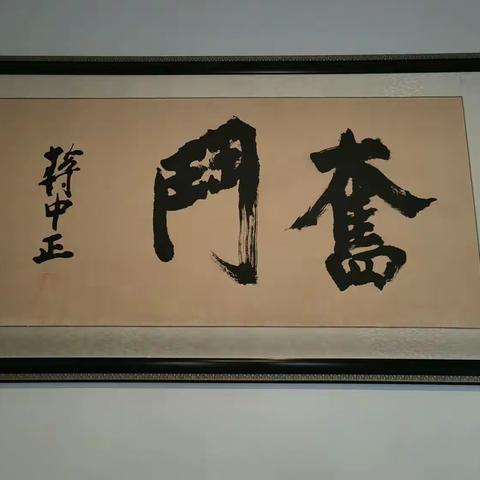 奮鬥
蔣中正